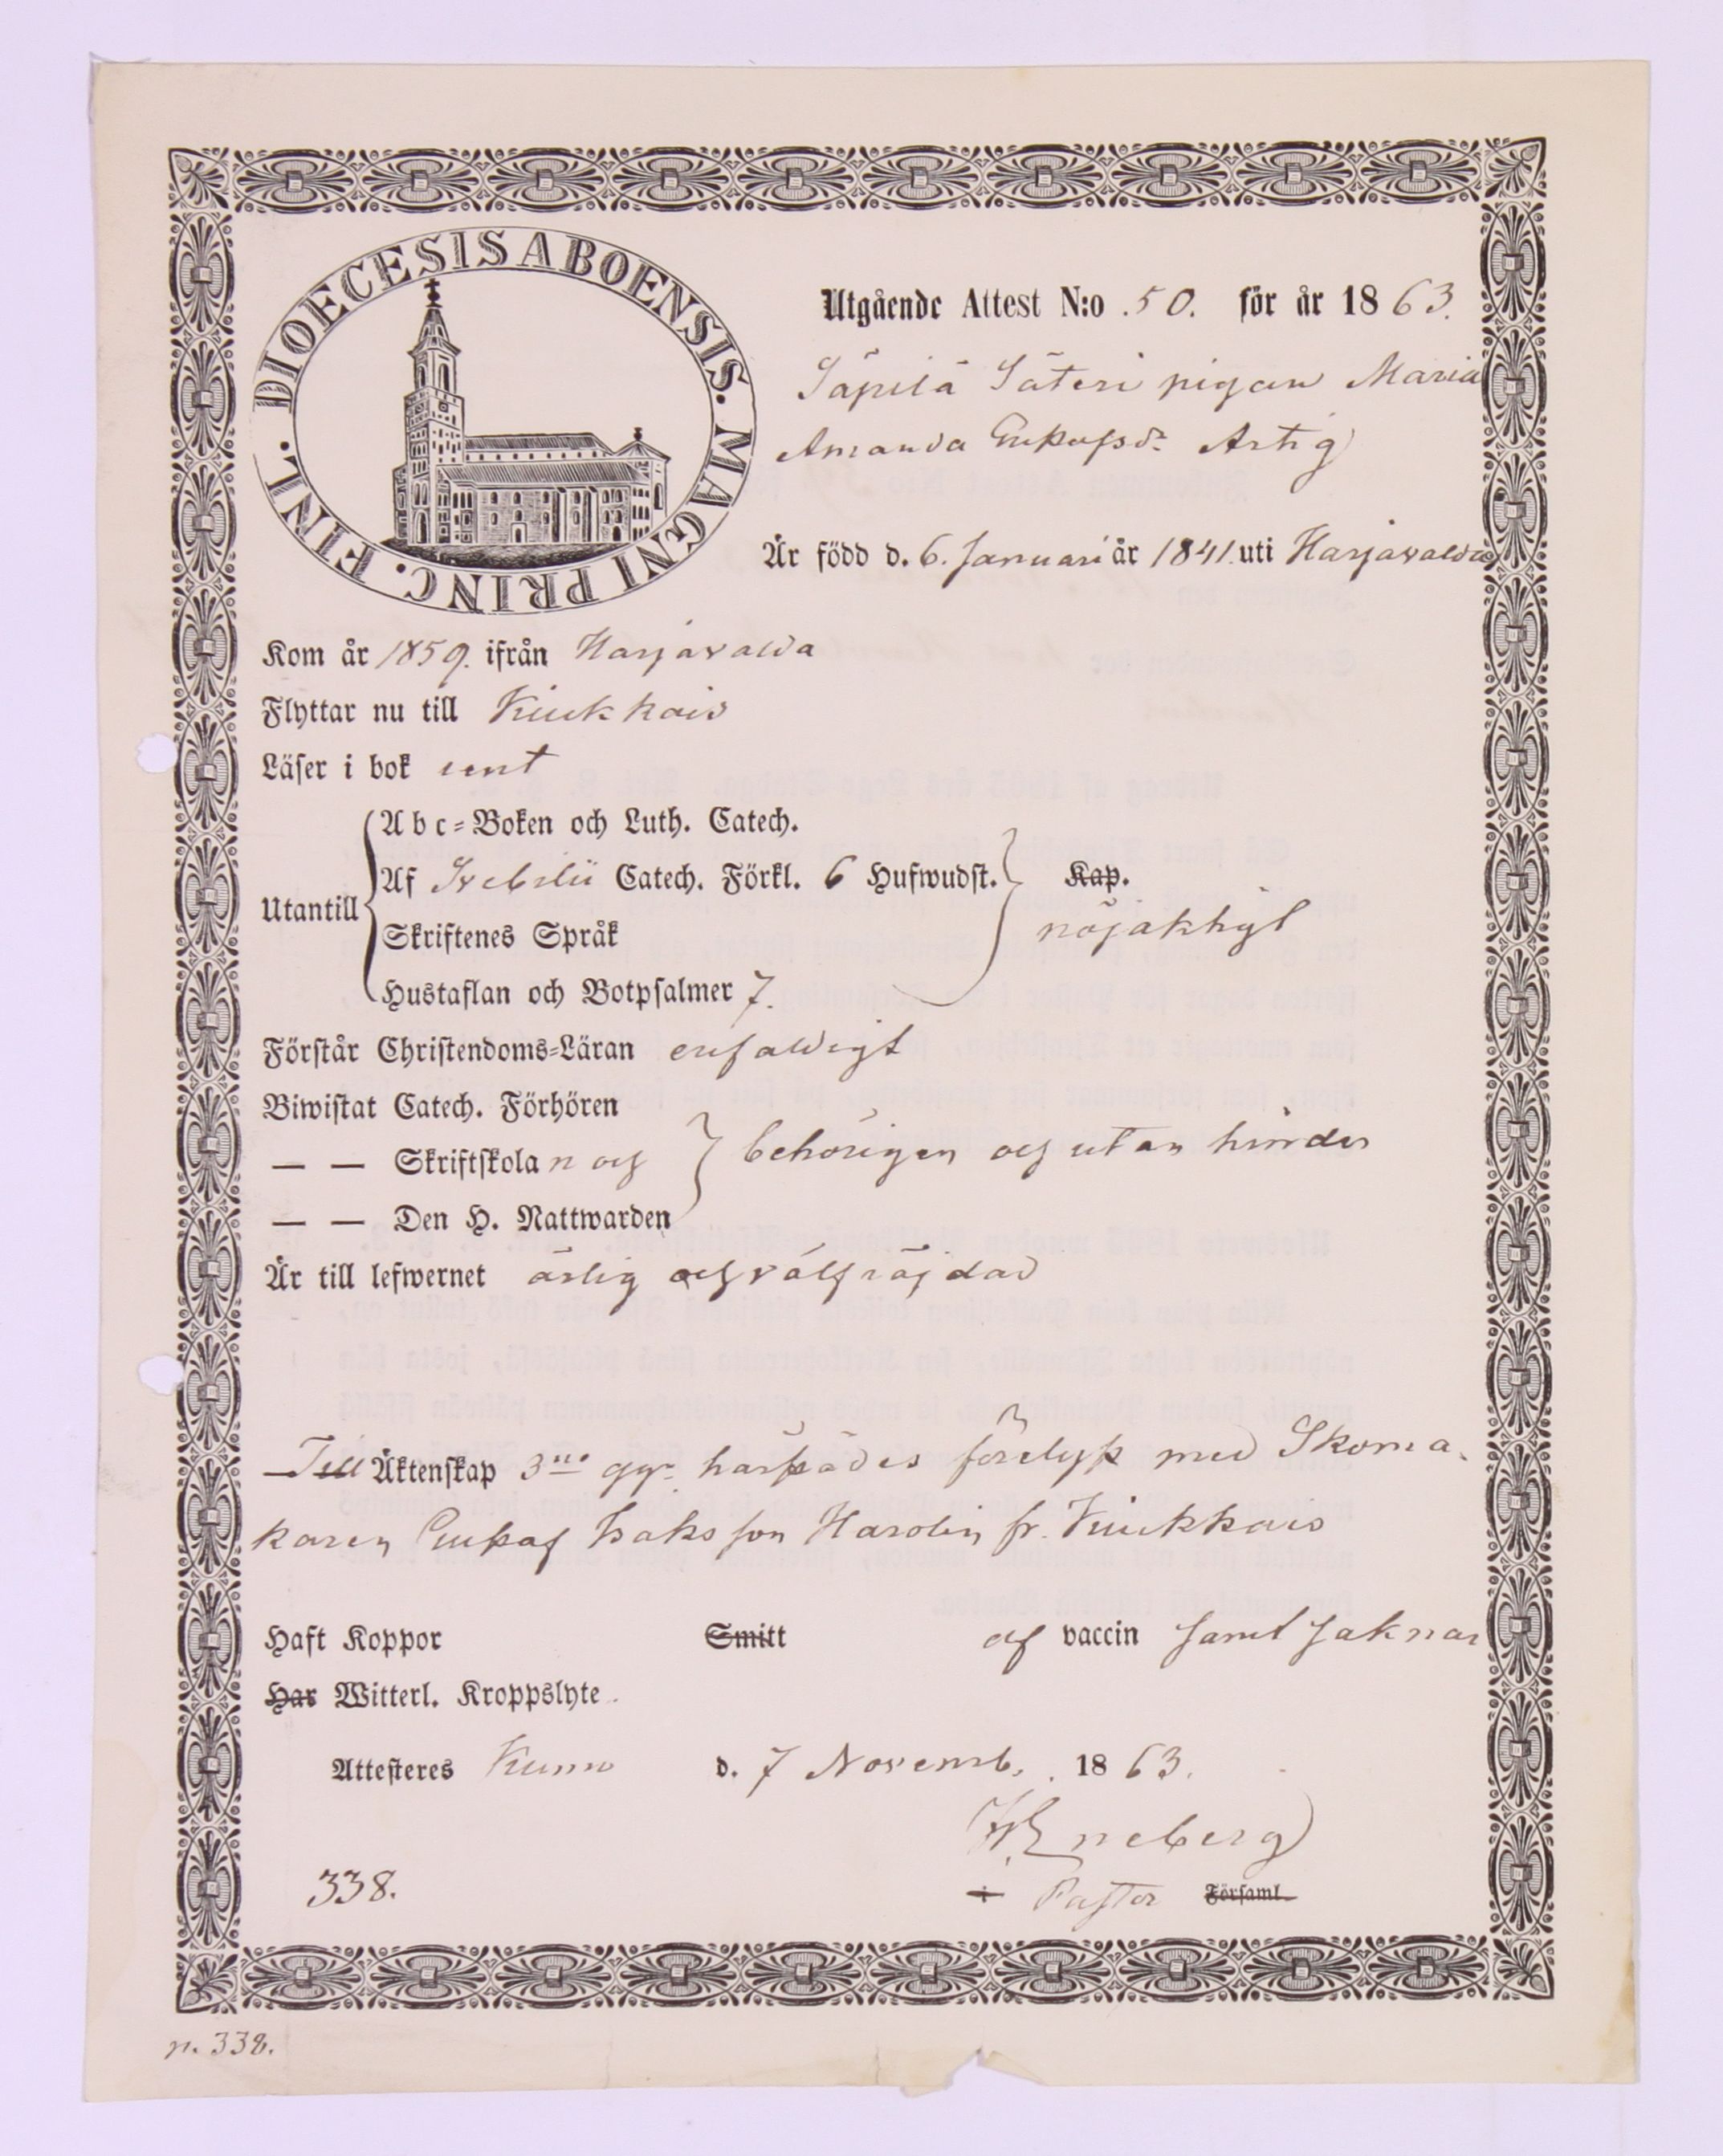 DIOECESIS ABOENSIS. MAGNI PRINC. FINL.
Utgående Attest N:o 50. för år 1863.
Säpilä Säteri pigan Maria
Amanda Gustafsdr Artig
Är född d. 6. Januari år 1841. uti Harjavalda
Kom år 1859. ifrån Harjavalda
Flyttar nu till Kiukkais
Läser i bok rent
Utantill
Abc-Boken och Luth. Catech.
Af Svebilii Catech. Förkl. 6 Hufwudst. Kap.
Skriftenes Språk
nöjaktigt
Hustaflan och Botpsalmer 7.
Förstår Christendoms-Läran enfaldigt
Biwistat Catech. Förhören
— — Skriftskolan och behörigen och utan hinder
— — Den H. Nattwarden
Är till lefwernet ärlig och välfräjdad
Till Äktenskap 3ne ggr härstädes förelyst med Skoma-
karen Gustaf Isaksson Harolin fr. Kiukkais
Haft Koppor Smitt af vaccin samt saknar
Har Witterl. Kroppslyte.
Attesteres Kumo d. 7 Novemb. 1863.
Eneberg
i Pastor Församl.
338.
n. 338.